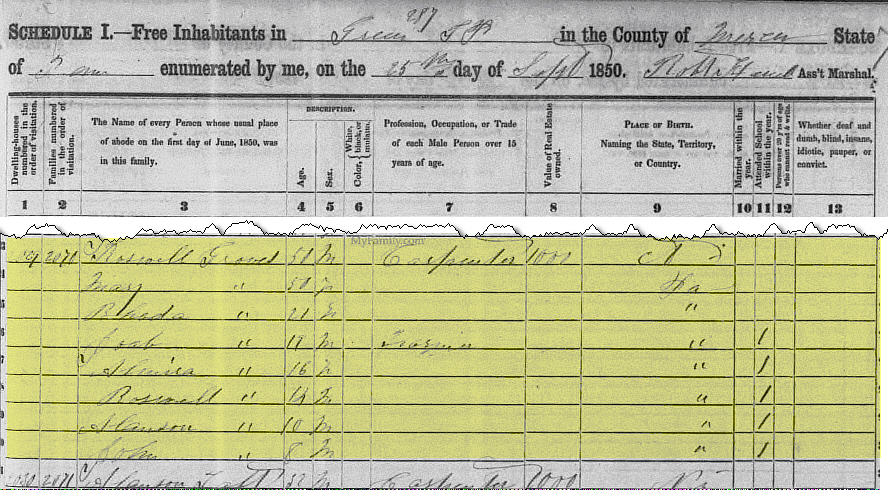 287
SCHEDULE I.—Free Inhabitants in Green T P in the County of Mercer State
of enumerated by me, on the 25 day of Sept 1850. Robt Ass't Marshal.
Dwelling-houses numbered in the order of visitation.
Families numbered in the order of visitation.
The Name of every Person whose usual place of abode on the first day of June, 1850, was in this family.
DESCRIPTION.
Age.
Sex.
Color, { White, black, or mulatto.
Profession, Occupation, or Trade of each Male Person over 15 years of age.
Value of Real Estate owned.
PLACE OF BIRTH.
Naming the State, Territory, or Country.
Married within the year.
Attended School within the year.
Persons over 20 y'rs of age who cannot read & write.
Whether deaf and dumb, blind, insane, idiotic, pauper, or convict.
1 2 3 4 5 6 7 8 9 10 11 12 13
MyFamily.com
2070 Roswell Groves M Carpenter
Mary " 50
Rhoda " 21 "
Joab " M " 1
Almira " 16 " 1
Roswell " 14 M " 1
Alanson " 10 M " 1
John " 8 M " 1
2071 Alanson M Carpenter 1000